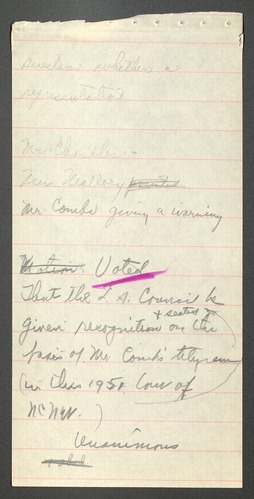 question whether a
representative
Mr. Chandler –
Miss Mallory
Mr Combs giving a warning
Motion Voted
That the L A. Council be
given recognition & seated on the
basis of Mr. Comb's telegram
(in this 1950 Conv of
NCNW.)
Unanimous